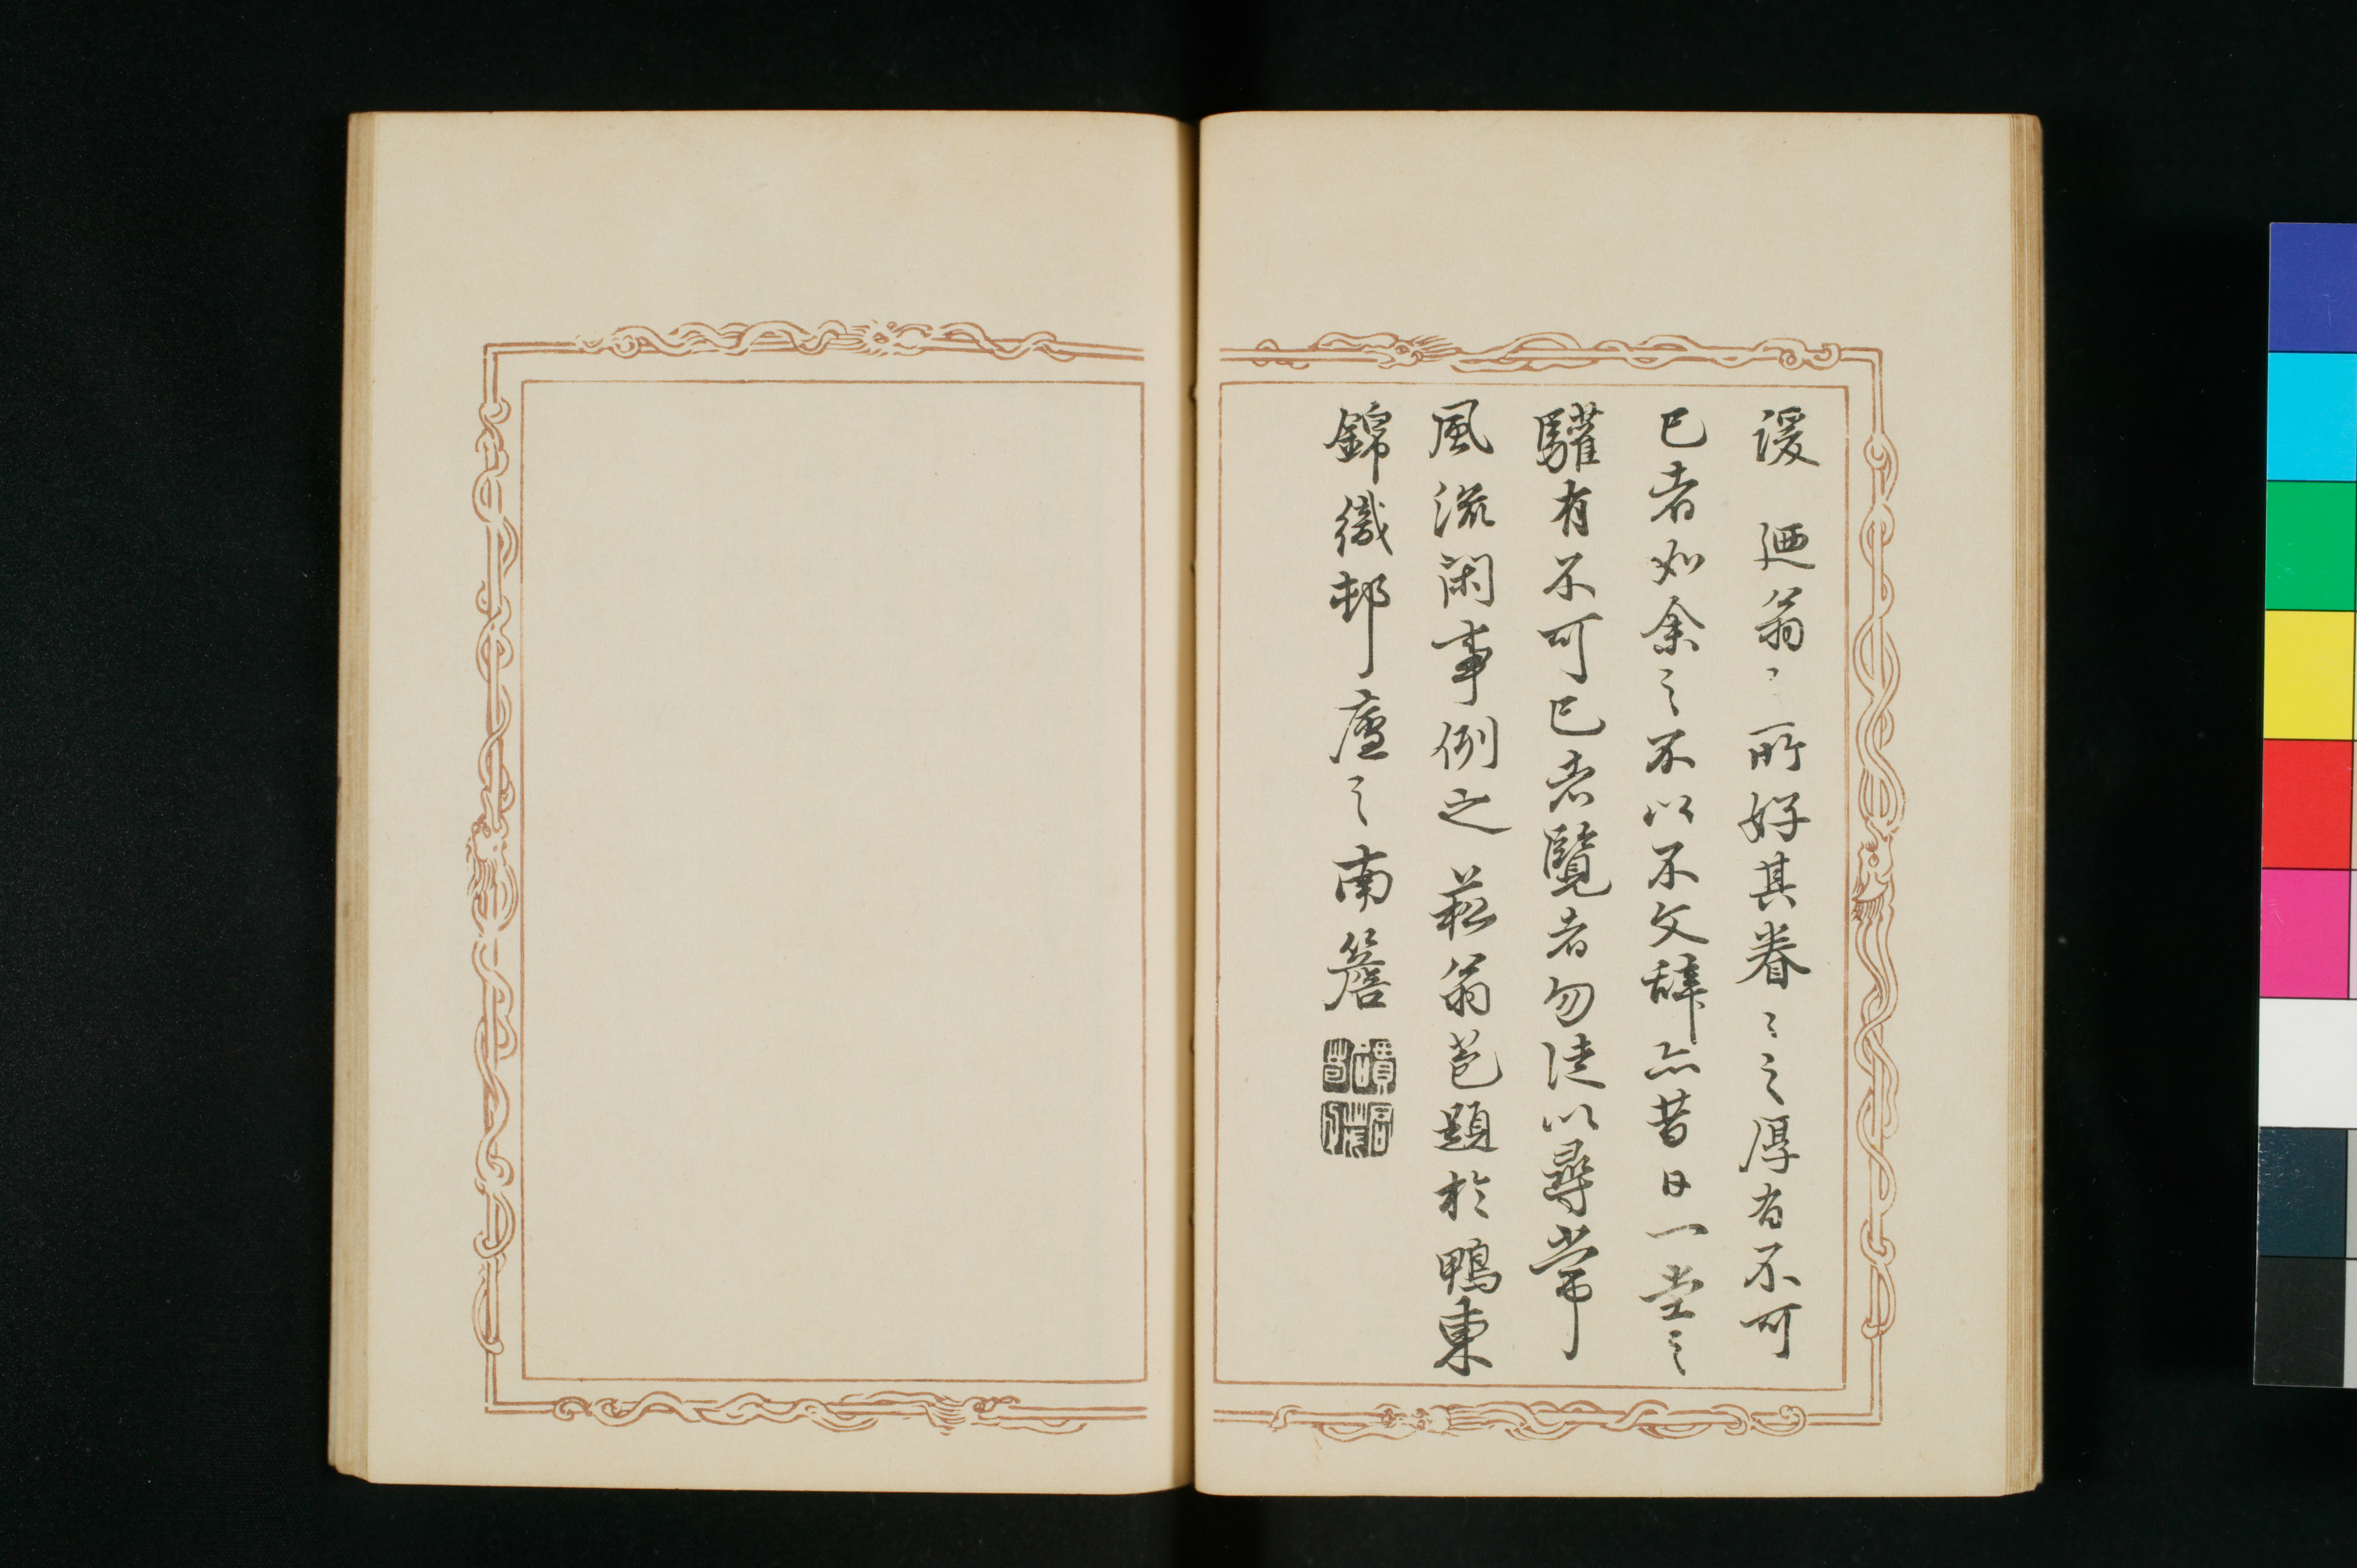 諼　廼翁〻所好其眷〻之厚有不可
已者如余之不以不文辞亦昔日一堂之
驩有不可已者覧者勿徒以尋常
風流閑事例之　菘翁苞題於鴨東
錦織邨廬之南簷